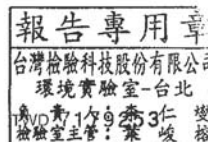 報告專用章
台灣檢驗科技股份有限公司
環境實驗室-台北
負責人:
TWD 71792 53
檢驗室主管:葉峻榕